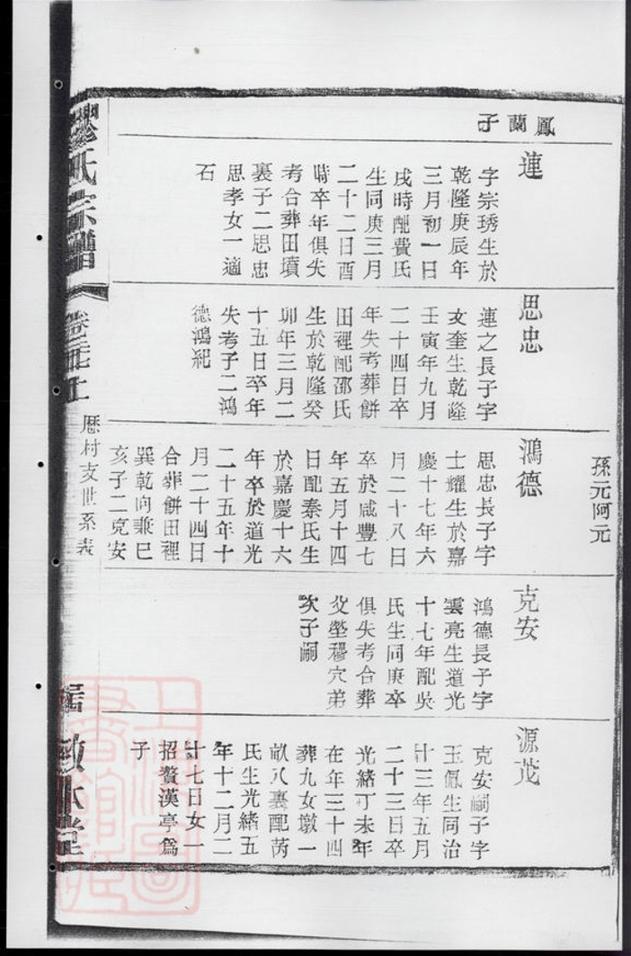 鳳蘭子
蓮
字宗琇生於
乾隆庚辰年
三月初一日
戌時配費氏
生同庚三月
二十二日酉
時卒年俱失
考合葬田墳
裏子二思忠
思孝女一適
石
思忠
蓮之長子字
文奎生乾隆
壬寅年九月
二十四日卒
年失考葬餅
田裡配邵氏
生於乾隆癸
卯年三月二
十五日卒年
失考子二鴻
德鴻紀
孫元阿元
鴻德
思忠長子字
士耀生於嘉
慶十七年六
月二十八日
卒於咸豐七
年五月十四
日配秦氏生
於嘉慶十六
年卒於道光
二十五年十
月二十四日
合葬餅田裡
巽乾向兼巳
亥子二克安
克安
鴻德長子字
雲亮生道光
十七年配吳
氏生同庚卒
俱失考合葬
父塋穆穴弟
次子嗣
源茂
克安嗣子字
玉佩生同治
廿三年五月
二十三日卒
光緒丁未年
在年三十四
葬九女墩一
畝八裏配芮
氏生光緒五
年十二月二
廿七日女一
招贅漢亭為
子
氏宗譜
卷三十七上
厯村支世系表
敘本堂